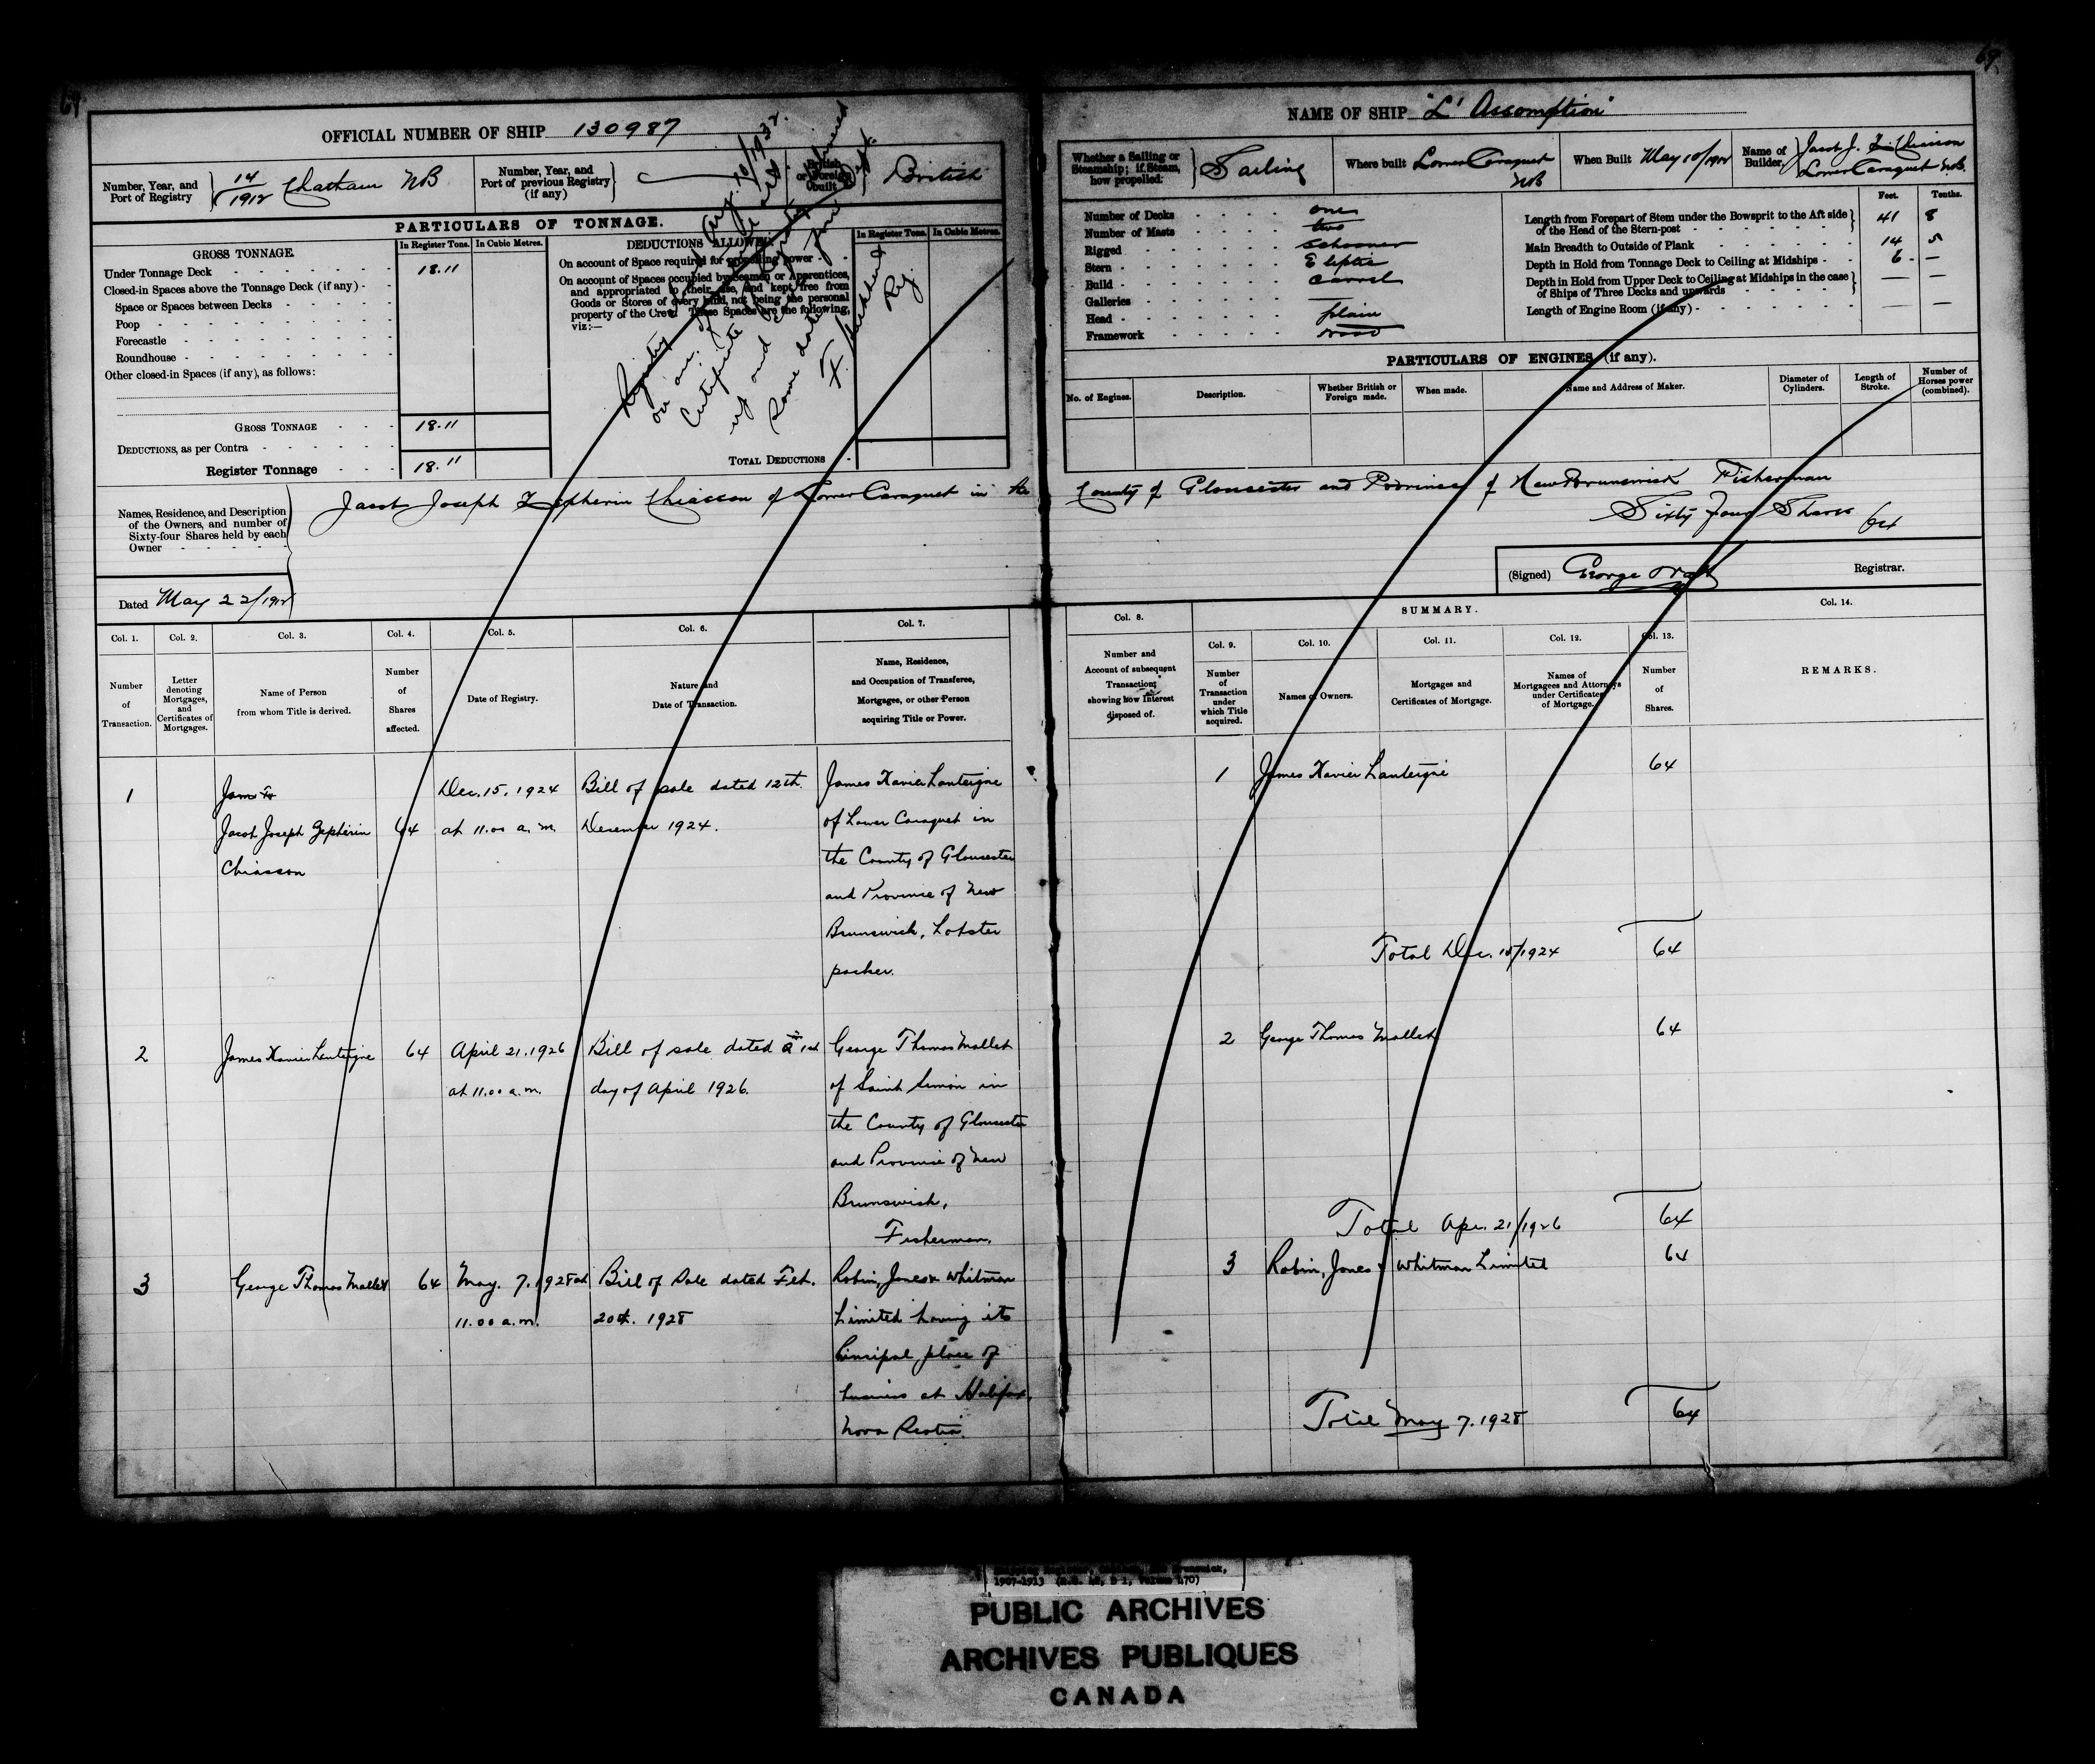 69
69
OFFICIAL NUMBER OF SHIP 130987
Number, Year, and
Port of Registry
14
1912
Chatham NB
Number, Year, and
Port of previous Registry
(if any)
British
or Foreign
built
British
PARTICULARS OF TONNAGE.
GROSS TONNAGE.
In Register Tons.
In Cubic Metres.
Under Tonnage Deck
18.11
Closed-in Spaces above the Tonnage Deck (if any)
Space or Spaces between Decks
Poop
Forecastle
Roundhouse
Other closed-in Spaces (if any), as follows:
GROSS TONNAGE
18.11
DEDUCTIONS, as per Contra
Register Tonnage
18.11
DEDUCTIONS ALLOWED.
In Register Tons.
In Cubic Metres.
On account of Space required for propelling power
On account of Spaces occupied by Seamen or Apprentices,
and appropriated to their use, and kept free from
Goods or Stores of every kind, not being the personal
property of the Crew. These Spaces are the following,
viz:—
TOTAL DEDUCTIONS
Registry
Aug. 10/1932.
Certificate
same date
F.
Reg.
Names, Residence, and Description
of the Owners, and number of
Sixty-four Shares held by each
Owner
Jacob Joseph Zepherin Chiasson of Lower Caraquet in the
Dated May 22/1912
NAME OF SHIP "L' Assomption"
Whether a Sailing or
Steamship; if Steam,
how propelled:
Sailing
Where built Lower Caraquet
NB
When Built May 10/1912
Name of
Builder,
Jacob J. Z. Chiasson
Lower Caraquet N.B.
Number of Decks one
Number of Masts two
Rigged Schooner
Stern Eliptic
Build Carvel
Galleries
Head plain
Framework wood
Feet.
Tenths.
Length from Forepart of Stem under the Bowsprit to the Aft side
of the Head of the Stern-post
41 8
Main Breadth to Outside of Plank 14 5
Depth in Hold from Tonnage Deck to Ceiling at Midships 6 —
Depth in Hold from Upper Deck to Ceiling at Midships in the case
of Ships of Three Decks and upwards — —
Length of Engine Room (if any) — —
PARTICULARS OF ENGINES (if any).
No. of Engines.
Description.
Whether British or
Foreign made.
When made.
Name and Address of Maker.
Diameter of
Cylinders.
Length of
Stroke.
Number of
Horses power
(combined).
County of Gloucester and Province of New Brunswick Fisherman
Sixty Four Shares 64
(Signed) George Watt Registrar.
Col. 1.
Number
of
Transaction.
Col. 2.
Letter
denoting
Mortgages,
and
Certificates of
Mortgages.
Col. 3.
Name of Person
from whom Title is derived.
Col. 4.
Number
of
Shares
affected.
Col. 5.
Date of Registry.
Col. 6.
Nature and
Date of Transaction.
Col. 7.
Name, Residence,
and Occupation of Transferee,
Mortgagee, or other Person
acquiring Title or Power.
Col. 8.
Number and
Account of subsequent
Transactions
showing how Interest
disposed of.
SUMMARY.
Col. 9.
Number
of
Transaction
under
which Title
acquired.
Col. 10.
Names of Owners.
Col. 11.
Mortgages and
Certificates of Mortgage.
Col. 12.
Names of
Mortgagees and Attorneys
under Certificates
of Mortgage.
Col. 13.
Number
of
Shares.
Col. 14.
REMARKS.
1
Jacob Joseph Zepherin
Chiasson
64
Dec. 15. 1924
at 11.00 a. m.
Bill of sale dated 12th.
December 1924.
James Xavier Lanteigne
of Lower Caraquet in
the County of Gloucester
and Province of New
Brunswick, Lobster
packer.
1 James Xavier Lanteigne 64
Total Dec. 15/1924 64
2
James Xavier Lanteigne
64
April 21. 1926
at 11.00 a.m.
Bill of sale dated 1st
day of April 1926.
George Thomas Mallet
of Saint Simon in
the County of Gloucester
and Province of New
Brunswick,
Fisherman.
2 George Thomas Mallet 64
Total Apr. 21/1926 64
3
George Thomas Mallet
64
May. 7. 1928 at
11.00 a.m.
Bill of Sale dated Feb.
20th. 1928
Robin, Jones & Whitman
Limited having its
Principal place of
business at Halifax,
Nova Scotia.
3 Robin, Jones & Whitman Limited 64
Total May 7. 1928 64
PUBLIC ARCHIVES
ARCHIVES PUBLIQUES
CANADA